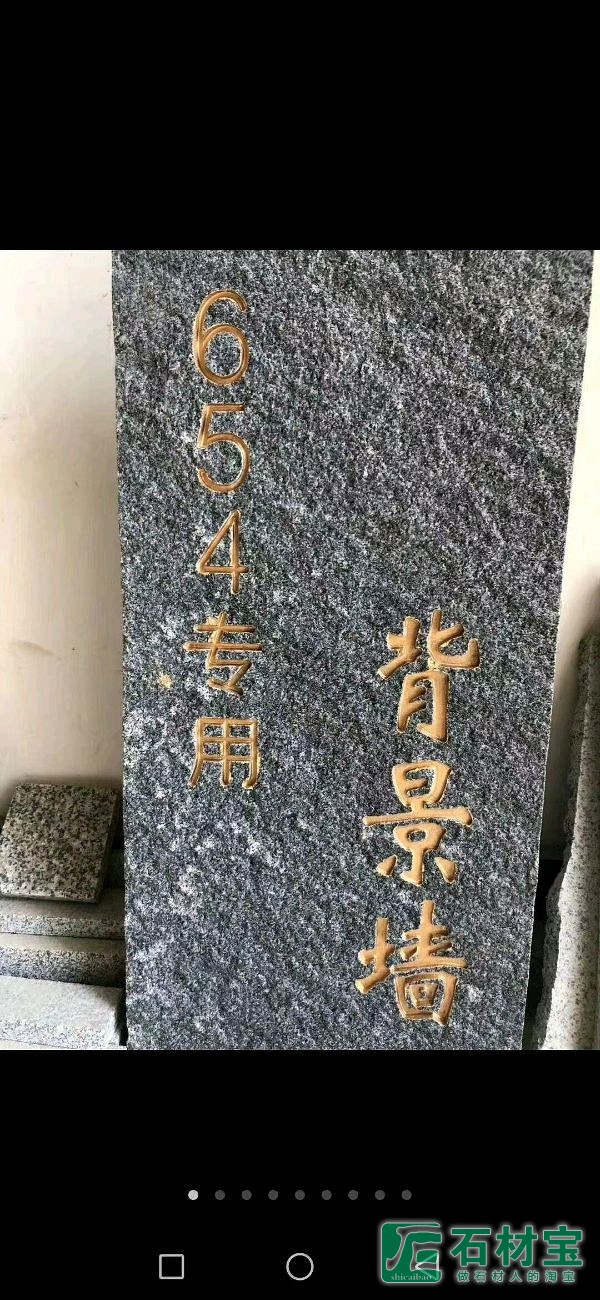 背景墙
654专用
石材宝
shicaibao
做石材人的淘宝